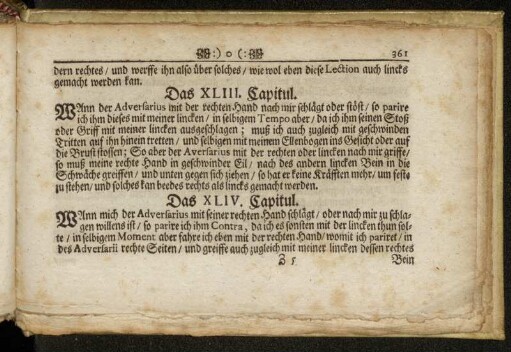 :) o (: 361
dern rechtes / und werffe ihn also über solches / wie wol eben diese Lection auch lincks
gemacht werden kan.
Das XLIII. Capitul.
WAnn der Adversarius mit der rechten Hand nach mir schlägt oder stöst / so parire
ich ihm dieses mit meiner lincken / in selbigem Tempo aber / da ich ihm seinen Stoß
oder Griff mit meiner lincken ausgeschlagen ; muß ich auch zugleich mit geschwinden
Tritten auf ihn hinein tretten / und selbigen mit meinem Ellenbogen ins Gesicht oder auf
die Brust stossen ; So aber der Aversarius mit der rechten oder lincken nach mir griffe /
so muß meine rechte Hand in geschwinder Eil / nach des andern lincken Bein in die
Schwäche greiffen / und unten gegen sich ziehen / so hat er keine Kräfften mehr / um fest
zu stehen / und solches kan beedes rechts als lincks gemacht werden.
Das XLIV. Capitul.
WAnn mich der Adversarius mit seiner rechten Hand schlägt / oder nach mir zu schla-
gen willens ist / so parire ich ihm Contra, da ich es sonsten mit der lincken thun sol-
te / in selbigem Moment aber fahre ich eben mit der rechten Hand / womit ich pariret / in
des Adversarii rechte Seiten / und greiffe auch zugleich mit meiner lincken dessen rechtes
Z 5 Bein